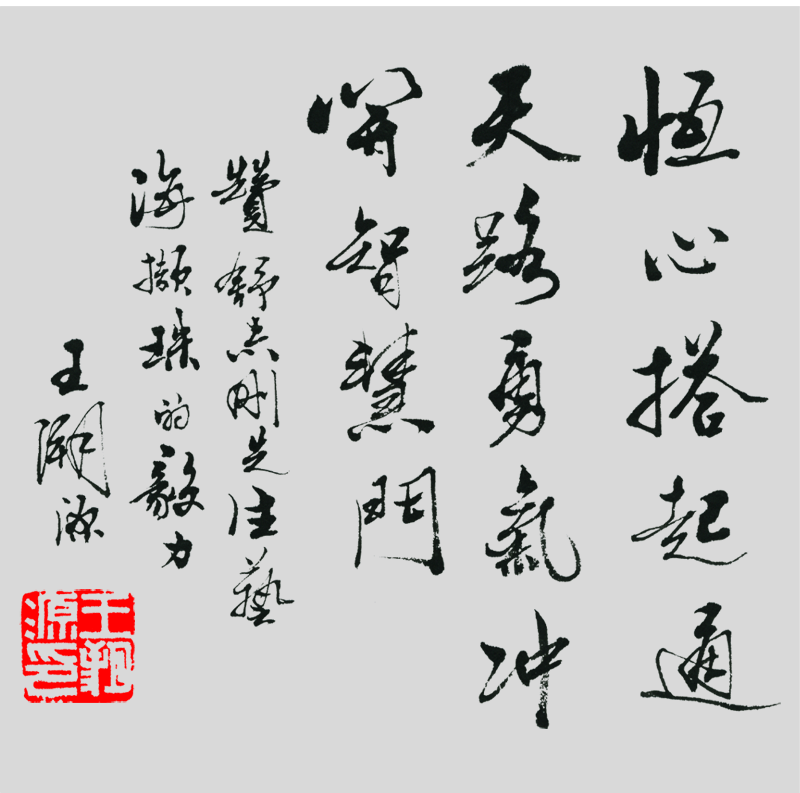 恒心搭起通
天路勇氣冲
開智慧門
贊舒志刚先生藝
海擷珠的毅力
王源
王源印